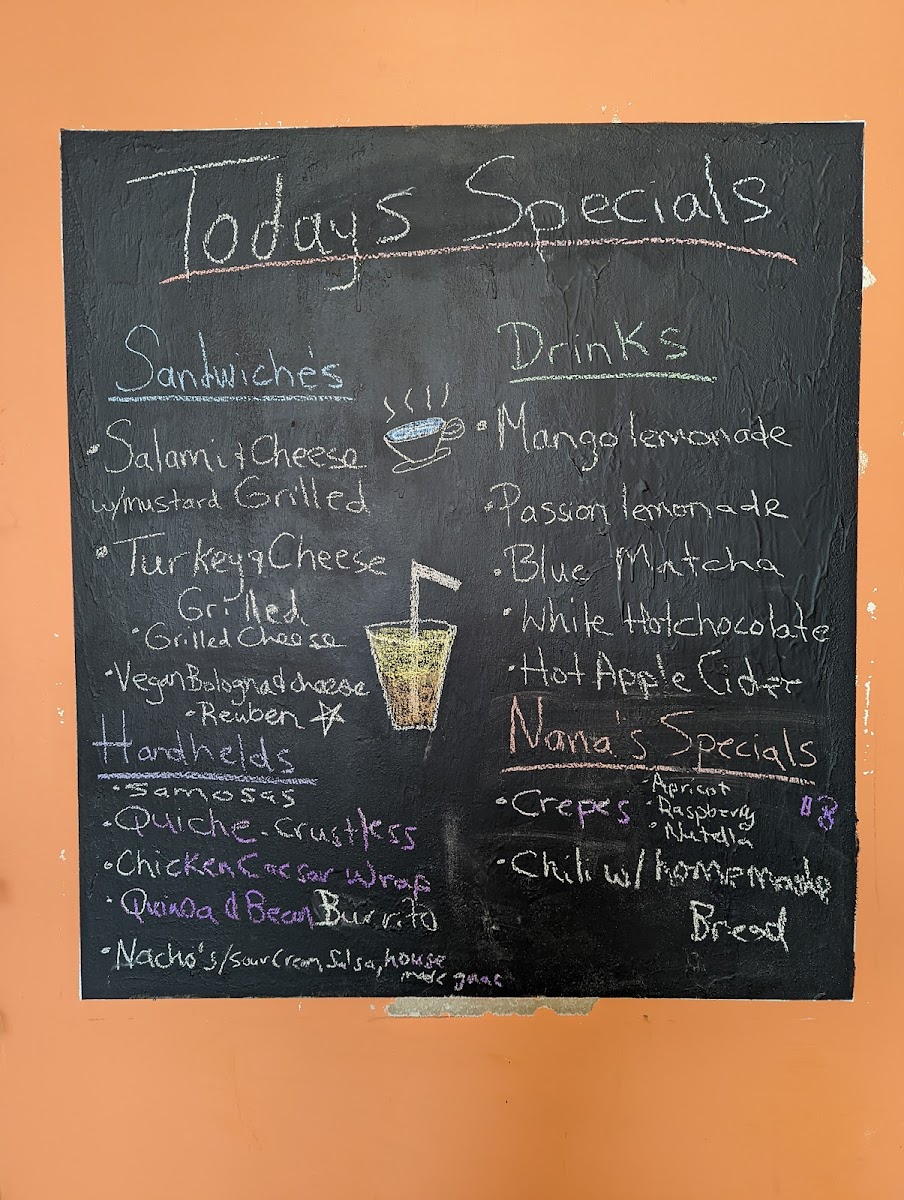 Todays Specials
Sandwiche's
• Salami & Cheese
w/mustard Grilled
• Turkey & Cheese
Grilled
• Grilled Cheese
• Vegan Bologna & cheese
• Reuben ☆
Handhelds
• Samosas
• Quiche - crustless
• Chicken Caesar wrap
• Quinoa & Bean Burrito
• Nacho's/sour cream, Salsa, house
made guac
Drinks
• Mango lemonade
• Passion lemonade
• Blue Matcha
• White Hotchocolate
• Hot Apple Cider
Nana's Specials
• Crepes
• Apricot
• Raspberry
• Nutella
• Chili w/ homemade
Bread